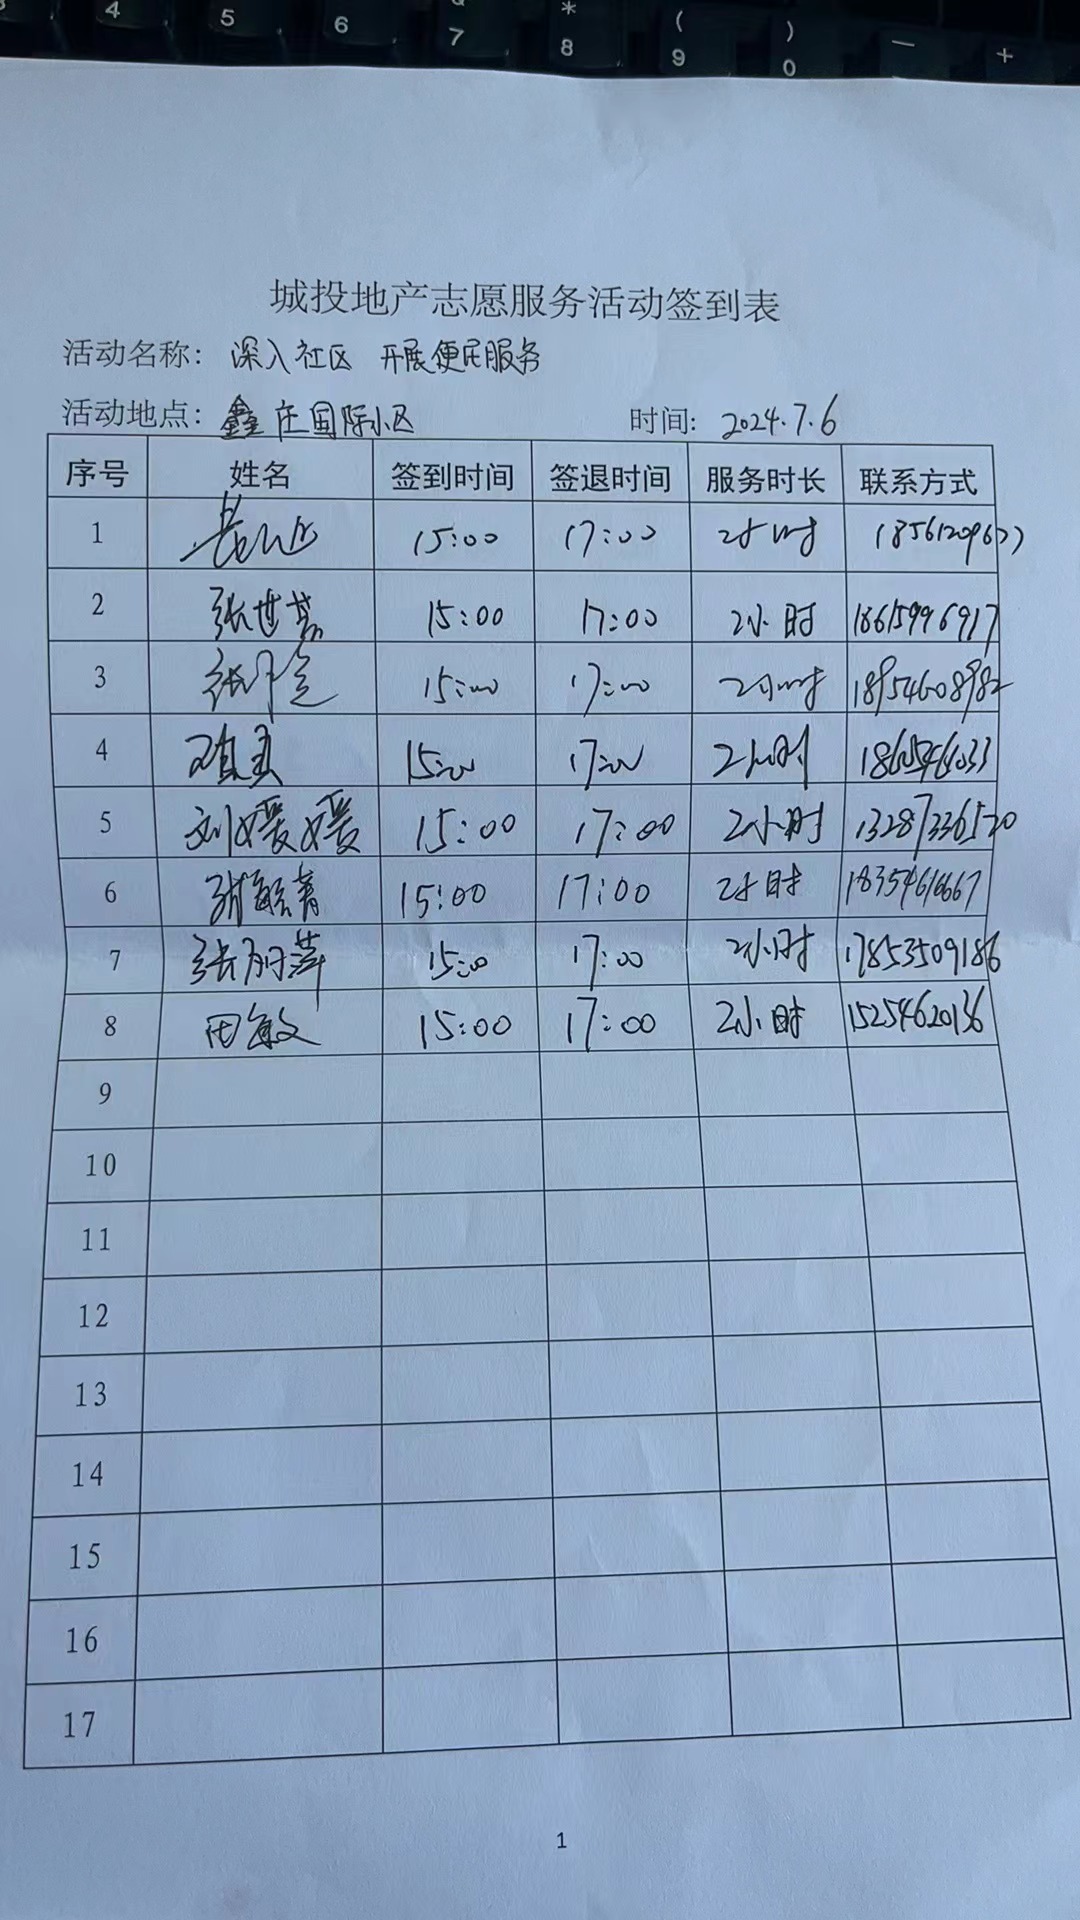 4 5 6 7 * 8 ( 9 ) 0 — +
城投地产志愿服务活动签到表
活动名称: 深入社区 开展便民服务
活动地点: 鑫庄国际小区 时间: 2024.7.6
序号 姓名 签到时间 签退时间 服务时长 联系方式
1 15:00 17:00 2小时
2 张世茗 15:00 17:00 2小时 18615996917
3 15:00 17:00 2小时 18954608982
4 15:00 17:00 2小时
5 刘媛媛 15:00 17:00 2小时 13287336520
6 15:00 17:00 2小时 18354616667
7 张丽萍 15:00 17:00 2小时 17853509186
8 田敏 15:00 17:00 2小时 15254620136
9
10
11
12
13
14
15
16
17
1